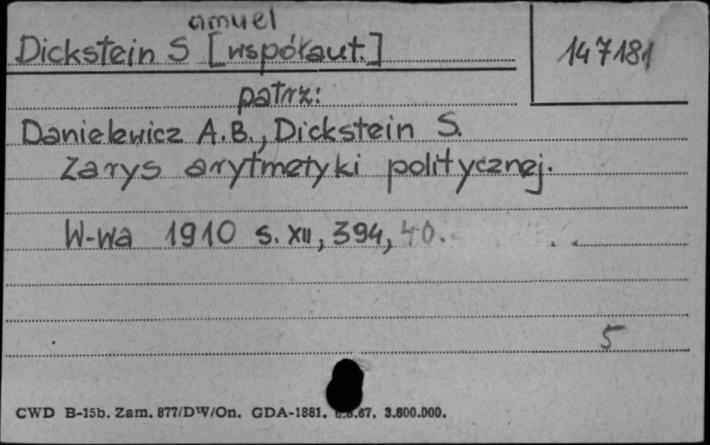 amuel
Dickstein S [współaut.]
147181
patrz:
Danielewicz A.B., Dickstein S.
Zarys arytmetyki politycznej.
W-wa 1910 s. XII, 394, 40.
5
CWD B-15b. Zam. 877/DW/On. GDA-1881. 6.6.67. 3.600.000.